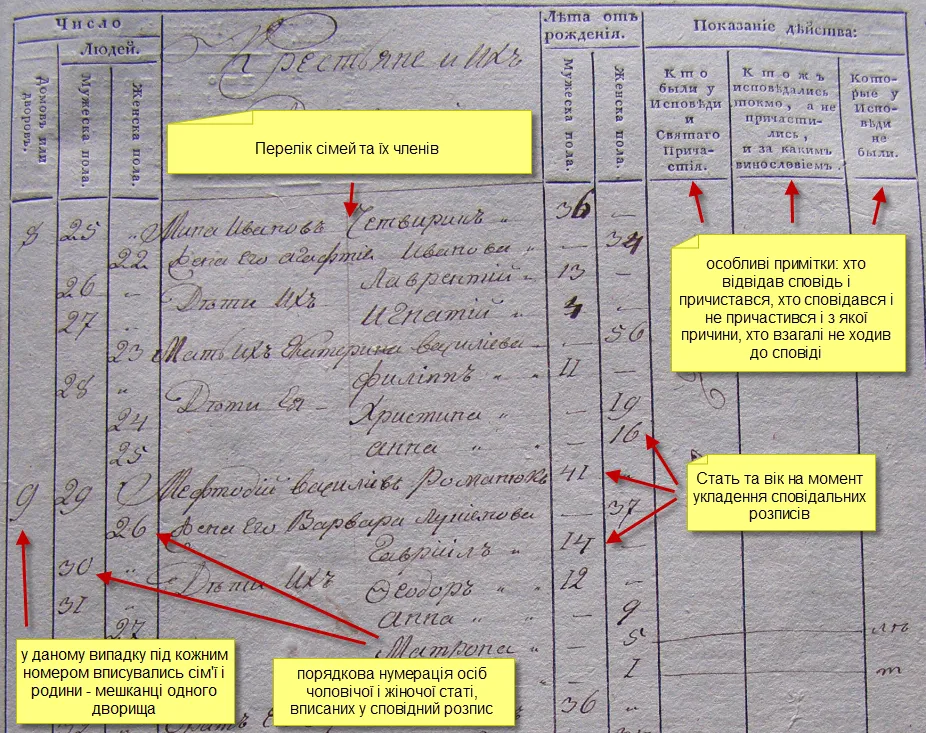 Число
Людей.
Домовъ или дворовъ.
Мужеска пола.
Женска пола.
Крестьяне и ихъ
Лѣта отъ рожденія.
Мужеска пола.
Женска пола.
Показаніе дѣйства:
Кто были у Исповѣди и Святаго Прича-стія.
Ктожъ исповѣдались токмо, а не причасти-лись, и за какимъ винословіемъ.
Кото-рые у Испо-вѣди не были.
Перелік сімей та їх членів
8 25 „ Ивановъ Четвиринъ „ 36 —
22 Жена его Агафтія Иванова „ — 34
26 — Дѣти ихъ Лаврентій „ 13 —
27 „ Игнатій „ 4 „
23 Мать ихъ Екатерина Василіева — 56
28 „ Дѣти Ея — Филіппъ „ „ 11 —
24 Христина „ — 19
25 Анна „ „ — 16
9 29 Мефтодій Василіевъ Романюкъ 41
26 Жена его Варвара — 37
Гавріилъ „ 14 —
30 „ Дѣти ихъ Ѳеодоръ „ 12 „
31 „ Анна „ — 9
27 Матрона „ 5
„ — 1
36 „
особливі примітки: хто
відвідав сповідь і
причистався, хто сповідався і
не причастився і з якої
причини, хто взагалі не ходив
до сповіді
Стать та вік на момент
укладення сповідальних
розписів
у даному випадку під кожним
номером вписувались сім'ї і
родини - мешканці одного
дворища
порядкова нумерація осіб
чоловічої і жіночої статі,
вписаних у сповідний розпис